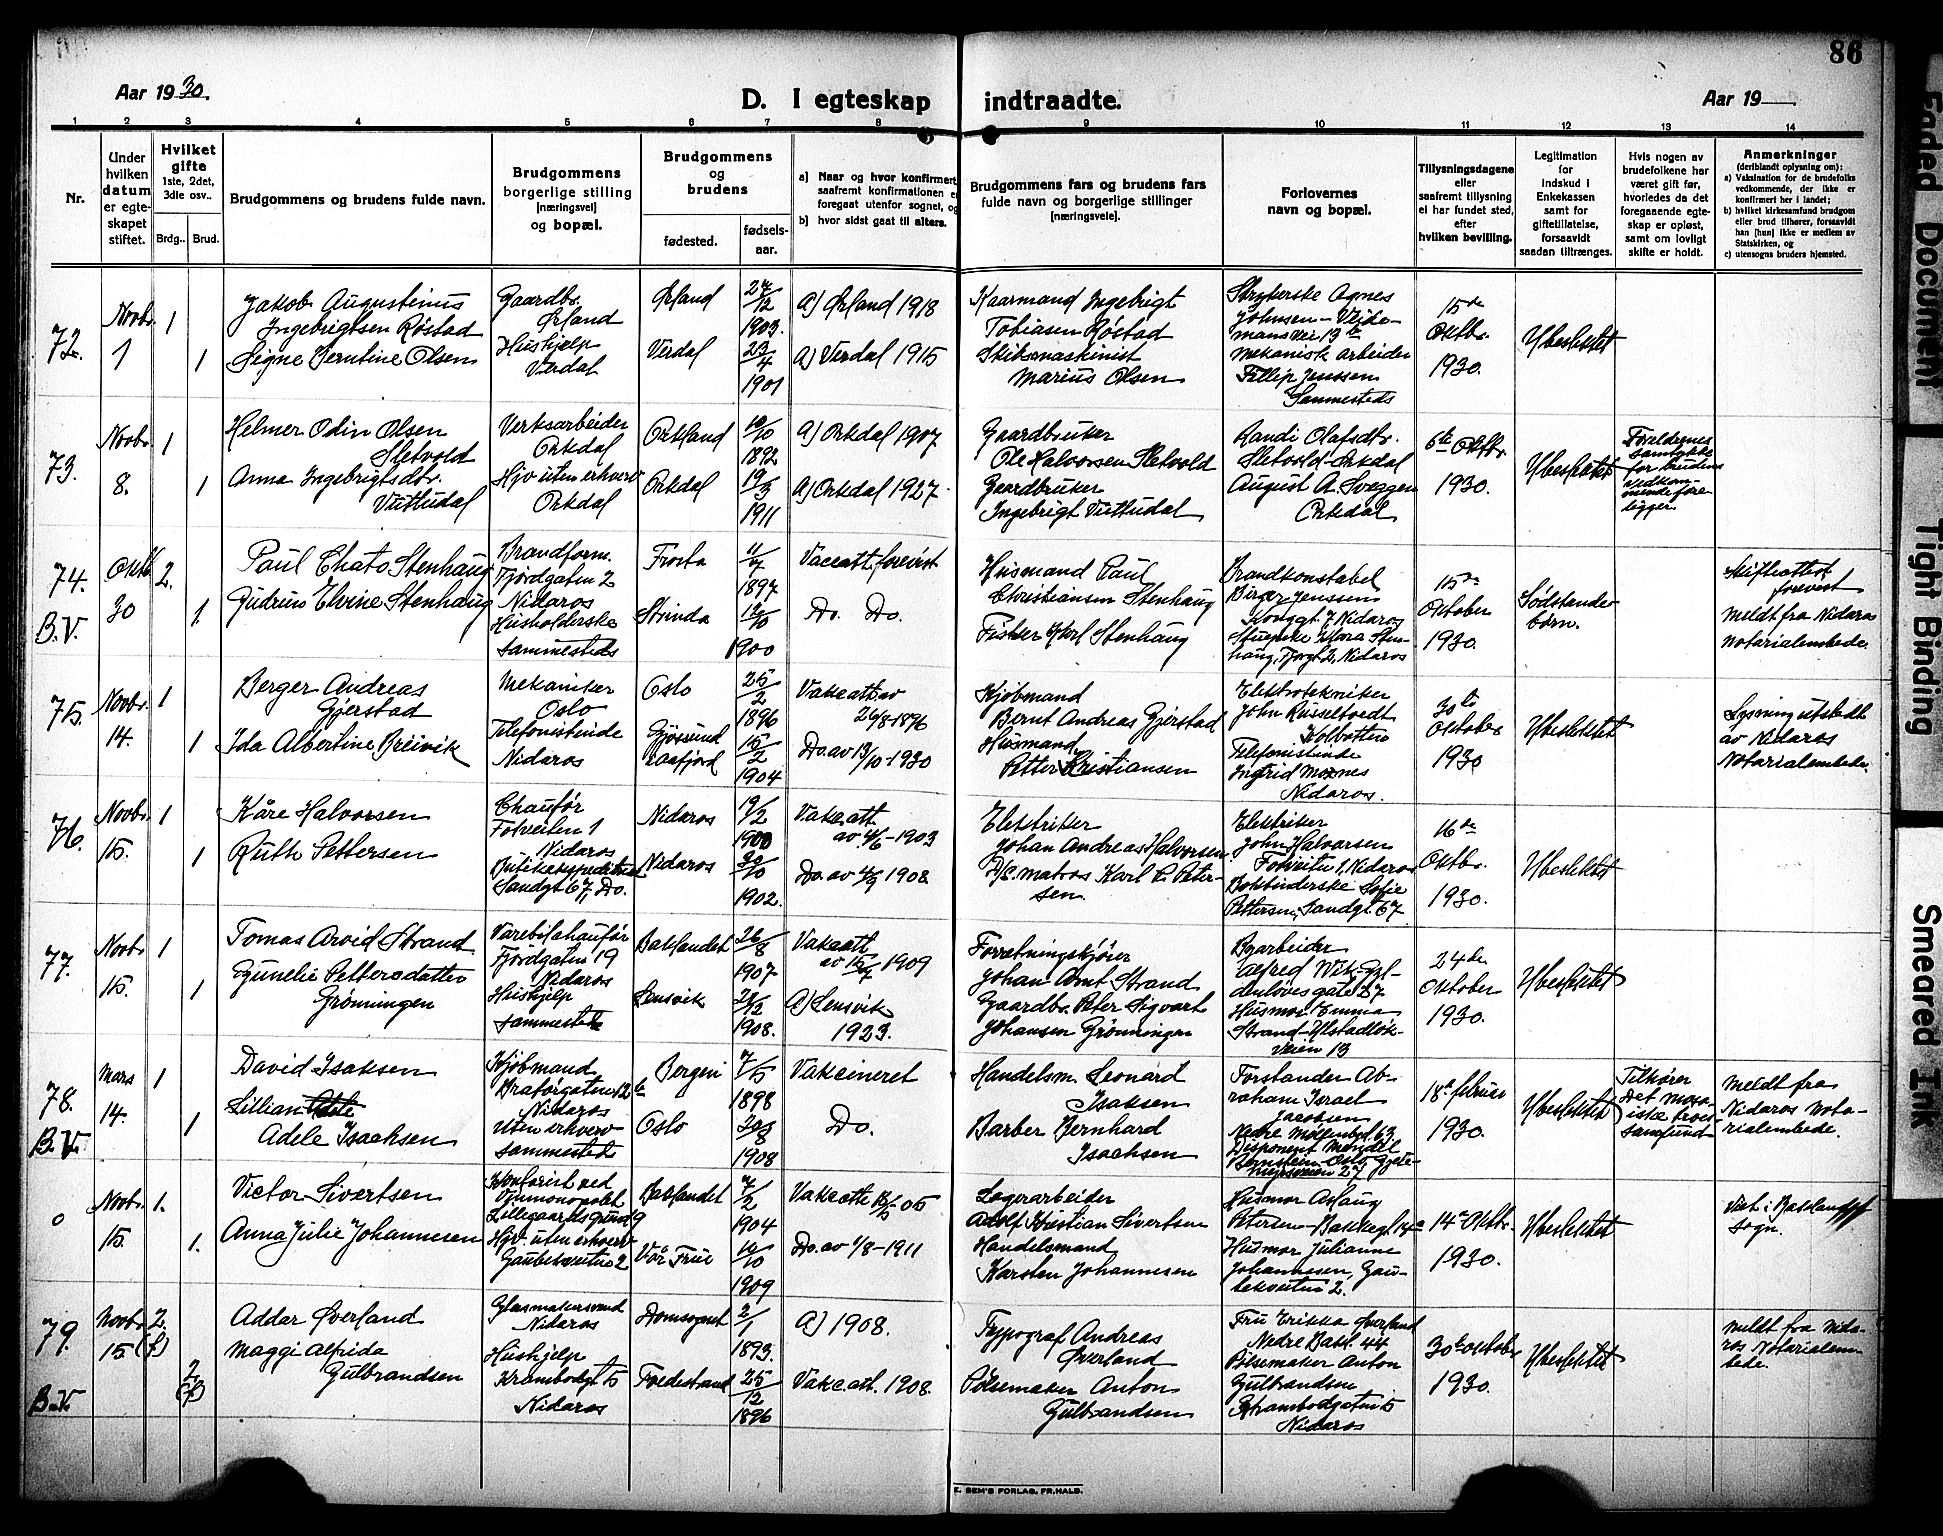 86
Aar 1930.
D. I egteskap indtraadte.
Aar 19
1 2 3 4 5 6 7 8 9 10 11 12 13 14
Nr.
Under
hvilken
datum
er egte-
skapet
stiftet.
Hvilket
gifte
1ste, 2det,
3die osv..
Brdg.. Brud.
Brudgommens og brudens fulde navn.
Brudgommens
borgerlige stilling
[næringsvei]
og bopæl.
Brudgommens
og
brudens
fødested.
fødsels-
aar.
a) Naar og hvor konfirmert
saafremt konfirmationen e
foregaat utenfor sognet, og
b) hvor sidst gaat til alters.
Brudgommens fars og brudens fars
fulde navn og borgerlige stillinger
[næringsveie].
Forlovernes
navn og bopæl.
Tillysningsdagene
eller
saafremt tillysning
ei har fundet sted,
efter
hvilken bevilling.
Legitimation
for
indskud i
Enkekassen
samt for
giftetillatelse,
forsaavidt
saadan tiltrænges.
Hvis nogen av
brudefolkene har
været gift før,
hvorledes da det
foregaaende egte-
skap er opløst,
samt om lovligt
skifte er holdt.
Anmerkninger
(deriblandt oplysning om):
a) Vaksination for de brudefolks
vedkommende, der ikke er
konfirmert her i landet;
b) hvilket kirkesamfund brudgom
eller brud tilhører, forsaavidt
han [hun] ikke er medlem av
Statskirken, og
c) utensogns bruders hjemsted.
72.
Novbr.
1
1
1
Jakob Augustinus
Ingebrigtsen Røstad
Signe Berntine Olsen
Gaardbr.
Ørland
Hushjelp
Verdal
Ørland
Verdal
24/12
1903.
23/4
1901
a) Ørland 1918
a) Verdal 1915
Kaarmand Ingebrigt
Tobiasen Røstad
Skibsmaskinist
Marius Olsen
Strykerske Agnes
Johnsen - Veide-
mansvei 13 b
mekanisk arbeider
Fillip Jenssen
Sammesteds
15de
Oktbr.
1930.
Ubeslektet
73.
Novbr.
8.
1
1
Helmer Odin Olsen
Sletvold
Anna Ingebrigtsdtr.
Vuttudal
Verksarbeider
Orkdal
Hjv uten erhverv
Orkdal
Orkland
Orkdal
10/10
1892
19/3
1911
a) Orkdal 1907
a) Orkdal 1927
Gaardbruker
Ole Halvorsen Sletvold
Gaardbruker
Ingebrigt Vuttudal
Randi Olafsdtr.
Sletvold - Orkdal
August A. Sveggen
Orkdal
6te Oktbr.
1930.
Ubeslektet
Foreldrenes
samtykke
for brudens
vedkom-
mende fore
ligger.
74.
B.V.
Oktb
30
2.
1.
Paul Chato Stenhaug
Gudrun Elvine Stenhaug
Brandform.
Fjordgaten 2
Nidaros
Husholderske
Sammesteds
Frosta
Strinda
1897
1900
Vaccatt. forevist
Do. Do.
Husmand Paul
Christiansen Stenhaug
Fisker Karl Stenhaug
Brandkonstabel
Birger Jenssen
Konggt 7 Nidaros
15de
Oktober
1930.
Sødskende-
børn.
Skifteattest
forevist
meldt fra Nidaros
Notarialembede.
75.
Novbr.
14.
1
1
Berger Andreas
Gjerstad
Ida Albertine Breivik
Mekaniker
Oslo
Telefonistinde
Nidaros
Oslo
25/2
1896
15/2
1904
Vakc.att. av
26/8-1896
Do. av 13/10-1930
Kjøbmand
Bernt Andreas Gjerstad
Husmand
Petter Kristiansen
Elektrotekniker
John Russeltvedt
Kolbotten
Telefonistinde
Ingrid Moxnes
Nidaros.
30te
Oktober
1930
Ubeslektet
Lysning utstedt
av Nidaros
Notarialembede.
76.
Novbr.
15.
1
1
Kåre Halvorsen
Ruth Pettersen
Chaufør
Nidaros
Sandgt 67, Do.
Nidaros
Nidaros
19/2
1900
1902.
Vakc.att.
av 4/6-1903
Do. av 4/9 1908.
Elektriker
Johan Andreas Halvorsen
matros Karl P. Peter-
sen.
Elektriker
John Halvorsen
Nidaros
Bokbinderske Sofie
Pettersen, Sandgt. 67
16de
Oktbr.
1930.
Ubeslektet
77.
Novbr.
15.
1
1
Tomas Arvid Strand
Gunelie Pettersdatter
Grønningen
Varebilchaufør
Fjordgaten 19
Nidaros
Hushjelp
Sammesteds
Baklandet
Lensvik
26/8
1907
1908.
Vakc.att.
1909
a) Lensvik
1923.
Forretningskjører
Johan Arnt Strand
Gaardbr. Peter Sigvart
Johansen Grønningen
Byarbeider
Alfred Wik - Gyl-
denløvesgate 27
Husmor Emma
Strand - Ilstadløk-
veien 13
24de
Oktober
1930.
Ubeslektet
78.
B.V.
Mars
14.
1
1
David Isaksen
Lillian
Adele Isachsen
Kjøbmand
Bratørgaten 12 b
Nidaros
Uten erhverv
Sammesteds
Bergen
Oslo
7/5
1898
1908
Vakcineret
Do.
Handelsm. Leonard
Isaksen
Barber Bernhard
Isachsen
Forstander Ab-
raham Israel
Jacobsen
Nedre Møllenbgt. 63
Disponent Mendel
Bernstein - Oslo, Gjete-
myrsveien 27
18de februar
1930.
Ubeslektet
Tilhører
Det mosa-
iske troes-
samfund
meldt fra
Nidaros Nota-
rialembede.
0
Novbr.
15.
1.
1.
Victor Sivertsen
Anna Julie Johannesen
Kontorist ved
Vinmonopolet
Hjv. uten erhverv
Gaubekveiten 2
Baklandet
Vår Frue
1904
10/10
1909
Do. av 1/8-1911
Lagerarbeider
Adolf Kristian Sivertsen
Handelsmand
Karsten Johannesen
Husmor Aslaug
Petersen - Bakkegt 14a
Husmor Julianne
Johannesen, Gau-
bekveiten 2.
14de Oktbr.
1930.
Ubeslektet
Viet i Baklandet
sogn.
79.
B.V.
Novbr.
15.
2.
(f)
2
(f)
Addar Øverland
Maggi Alfrida
Gulbrandsen
Glasmakersvend
Nidaros
Hushjelp
Krambodgt 5
Nidaros
Domsognet
Tvedestrand
2/1
1893.
25/12
1896
a) 1908.
Vakc.att. 1908.
Typograf Andreas
Øverland
Pølsemaker Anton
Gulbrandsen
Fru Erikka Øverland
Nedre Bakl. 44
Pølsemaker Anton
Gulbrandsen
Krambodgaten 5
Nidaros
30te oktober
1930.
Ubeslektet
meldt fra Nida-
ros Notarialem-
bede.
E. SEM'S FORLAG, FR.HALD.
Faded Document
Tight Binding
Smeared Ink